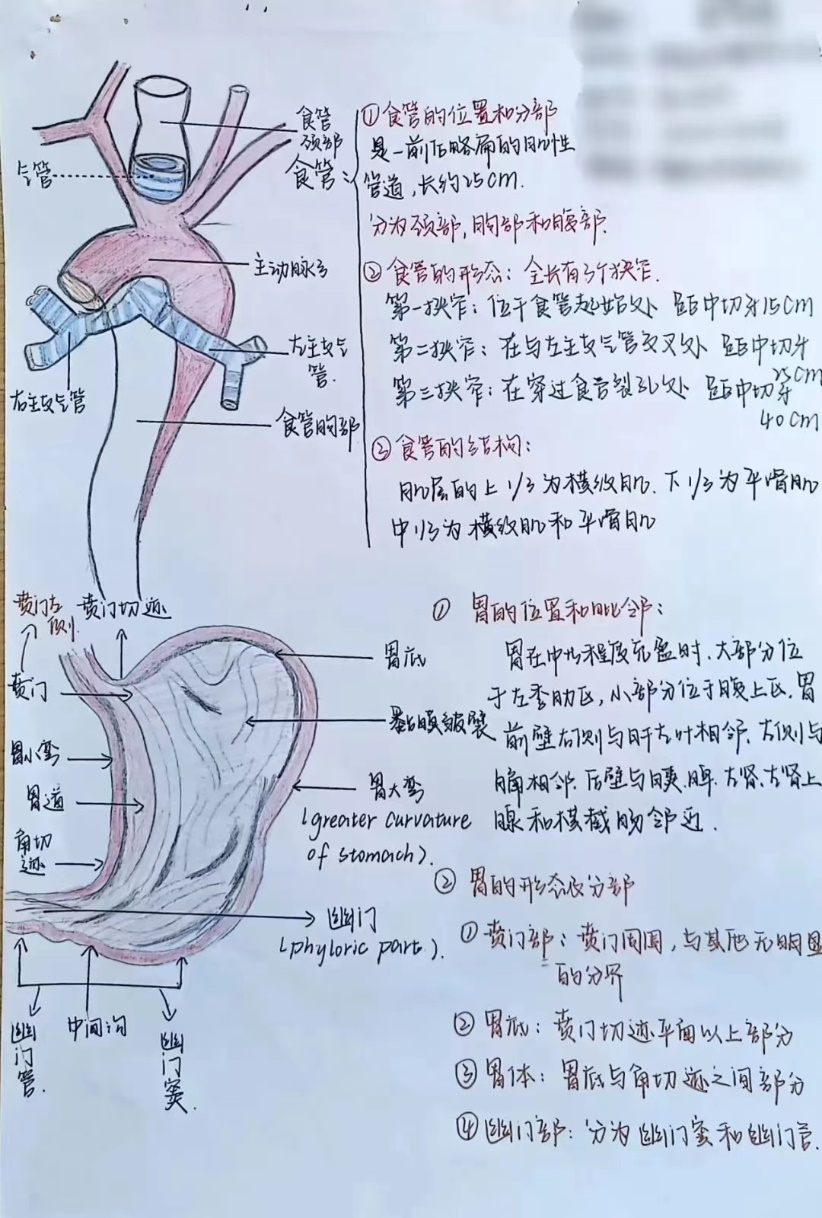 食管
颈部
气管
食管:
主动脉弓
左主支气
管.
右主支气管
食管胸部
①食管的位置和分部
是一前后略扁的肌性
管道,长约25cm.
分为颈部,胸部和腹部.
②食管的形态:全长有3个狭窄.
第一狭窄:位于食管起始处 距中切牙15cm
第二狭窄:在与左主支气管交叉处 距中切牙
25cm
第三狭窄:在穿过食管裂孔处 距中切牙
40cm
③食管的结构:
肌层的上1/3为横纹肌.下1/3为平滑肌
中1/3为横纹肌和平滑肌
贲门左
侧
贲门切迹
贲门
胃小弯
胃道
角切
迹
胃底
黏膜皱襞
胃大弯
(greater curvature
of stomach).
幽门
(phyloric part).
幽门管.
中间沟
幽门窦.
① 胃的位置和毗邻:
胃在中儿程度充盈时.大部分位
于左季肋区,小部分位于腹上区.胃
前壁右侧与肝左叶相邻.左侧与
膈相邻.后壁与胰.脾.左肾.左肾上
腺和横截肠邻近.
② 胃的形态及分部
①贲门部:贲门周围,与其他无明显
的分界
②胃底:贲门切迹平面以上部分
③胃体:胃底与角切迹之间部分
④幽门部:分为幽门窦和幽门管.